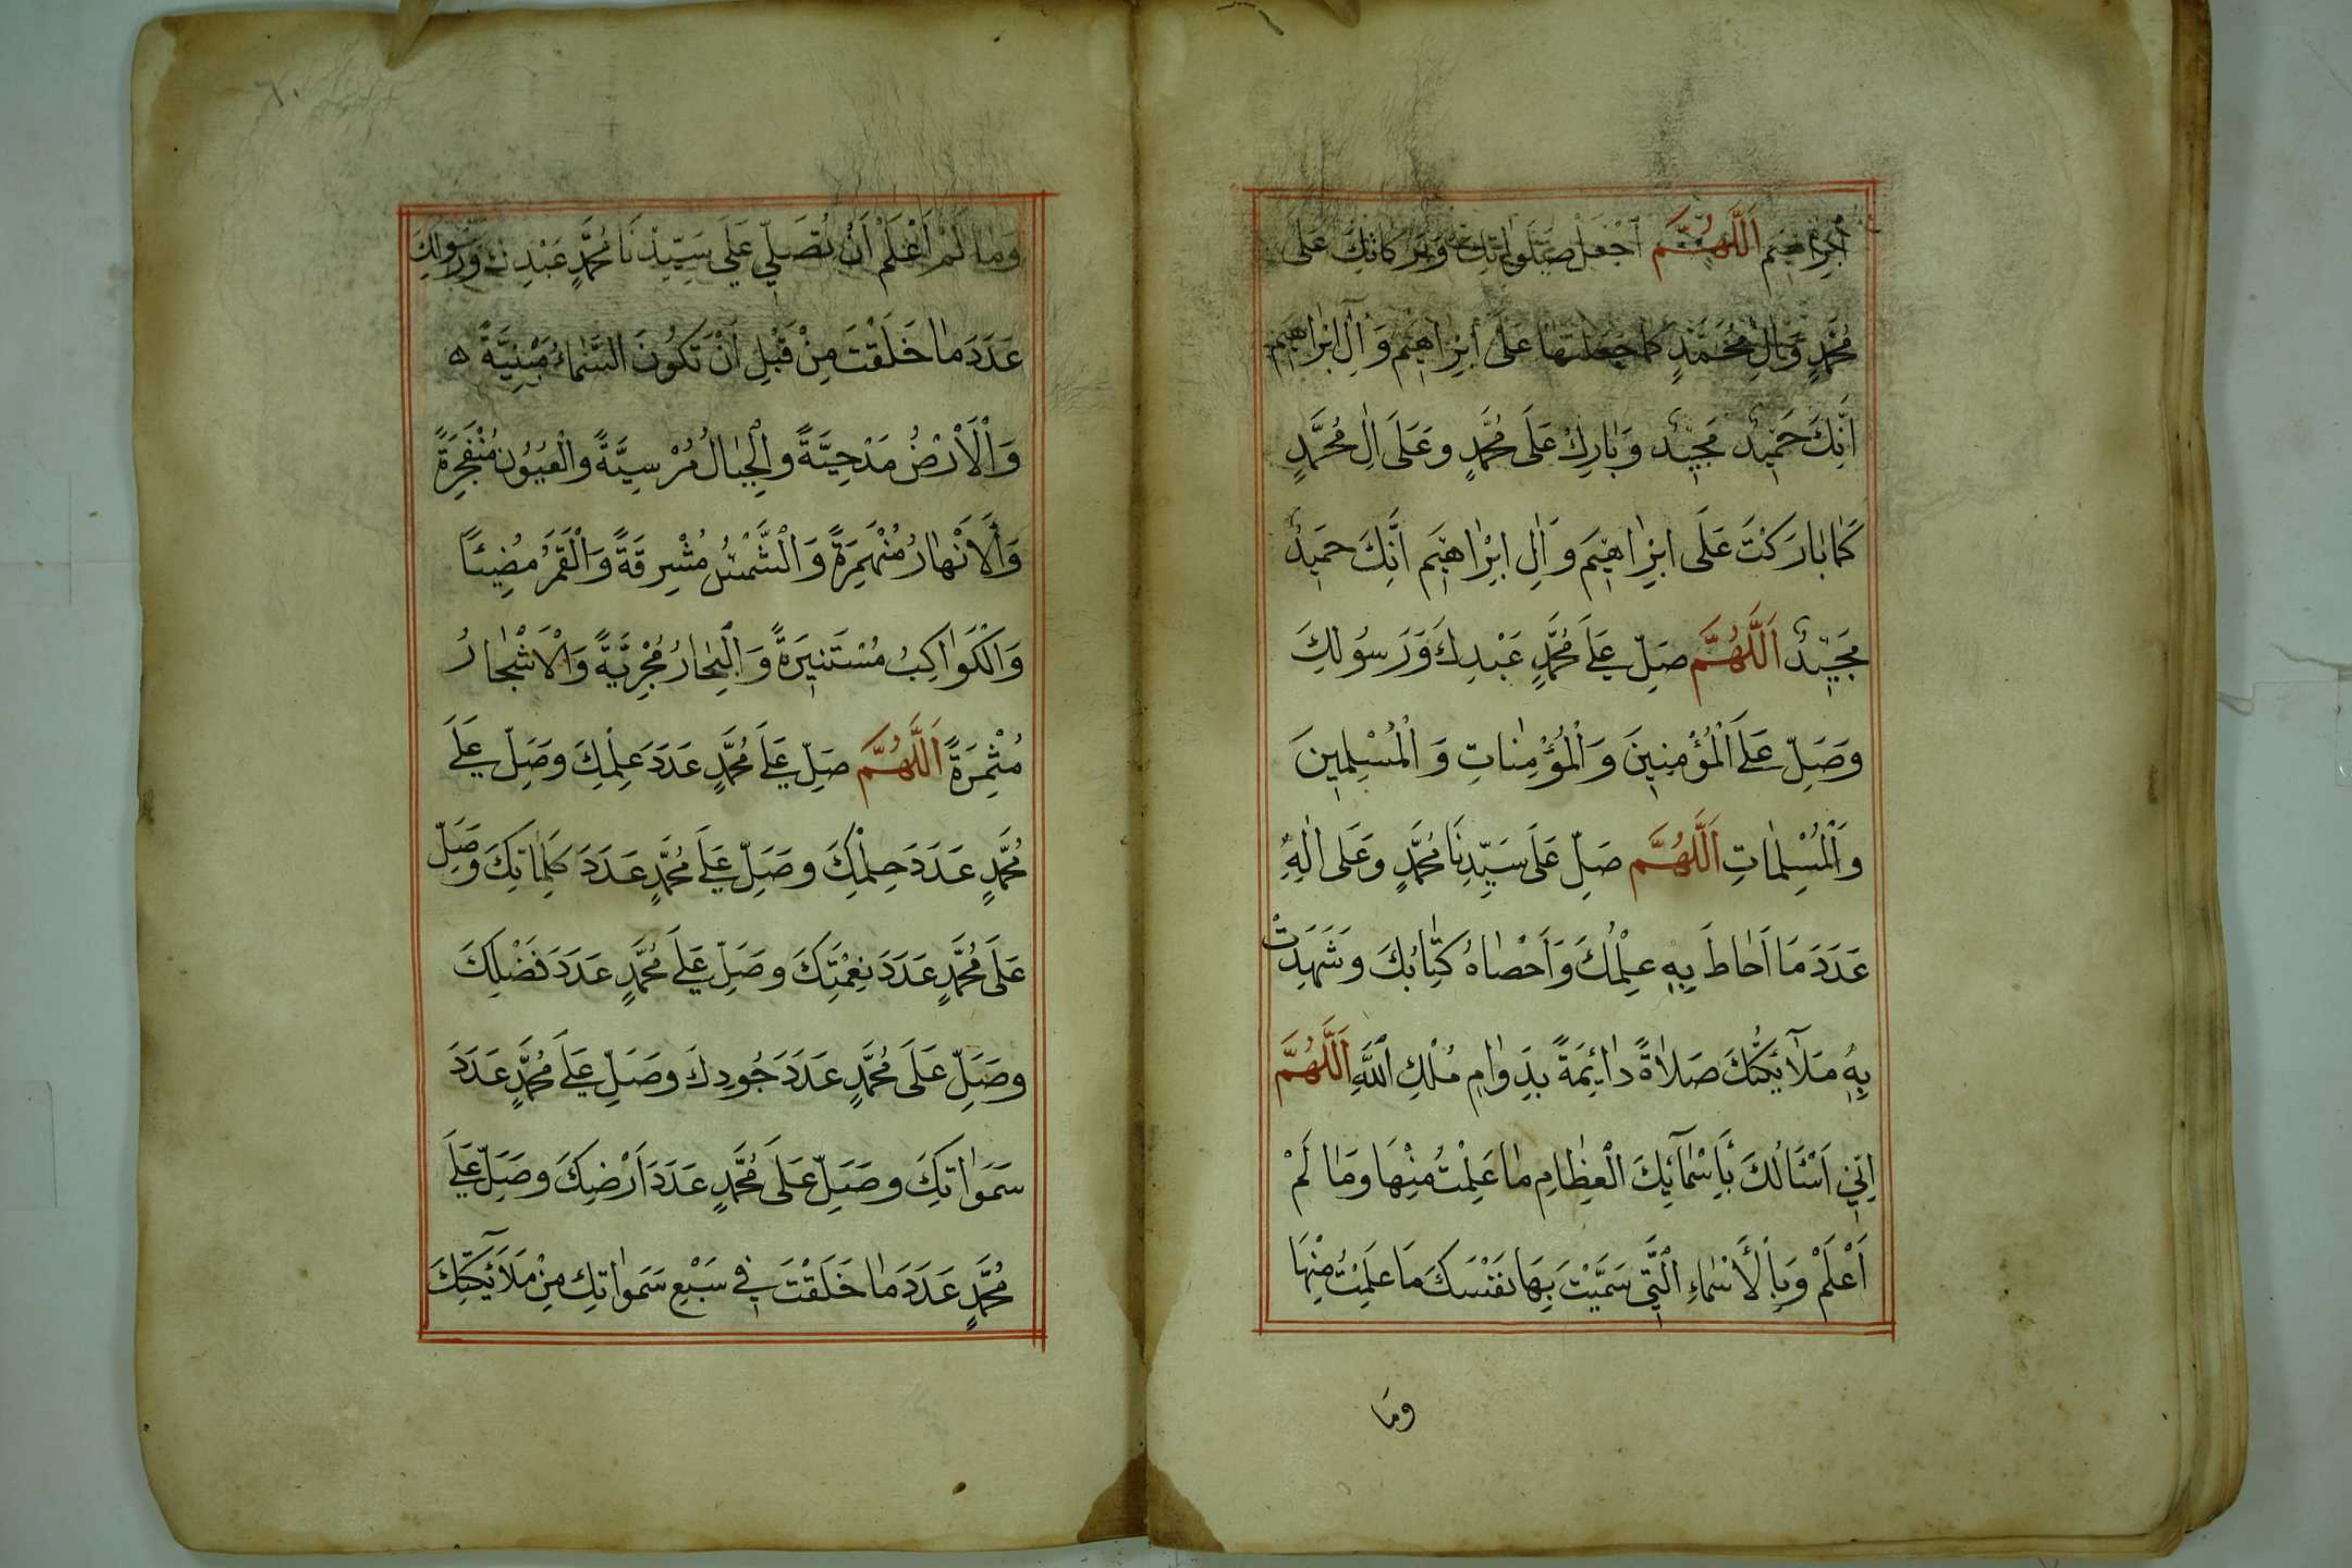 اِبْرَاهِيمَ اَللَّهُمَّ اجْعَلْ صَلَوٰاتِكَ وَبَرَكَاتِكَ عَلَى
مُحَمَّدٍ وَّاٰلِ مُحَمَّدٍ كَمٰا جَعَلْتَهٰا عَلَى اِبْرٰاهِيْمَ وَ اٰلِ اِبْرٰاهِيْمَ
اَنَّكَ حَمِيدٌ مَجِيدٌ وَبٰارِكْ عَلَى مُحَمَّدٍ وَعَلَى اٰلِ مُحَمَّدٍ
كَمٰا بٰارَكْتَ عَلَى اِبْرٰاهِيَم وَ اٰلِ اِبْرٰاهِيَم اَنَّكَ حَمِيدٌ
مَجِيدٌ اَللَّهُمَّ صَلِّ عَلَى مُحَمَّدٍ عَبْدِكَ وَرَسُولِكَ
وَصَلِّ عَلَى اَلْمُؤْمِنِينَ وَ اَلْمُؤْمِنٰاتِ وَ اَلْمُسْلِمِينَ
وَاَلْمُسْلِمٰاتِ اَللَّهُمَّ صَلِّ عَلَى سَيِّدِنَا مُحَمَّدٍ وَعَلَى اٰلِهِ
عَدَدَ مَا اَحٰاطَ بِهِ عِلْمُكَ وَاَحْصٰاهُ كِتٰابُكَ وَشَهِدَتْ
بِهِ مَلَآئِكَتُكَ صَلٰاةً دٰائِمَةً بِدَوٰامِ مُلْكِ اللَّهِ اَللَّهُمَّ
اِنِّي اَسْئَالُكَ بِأَسْمٰآئِكَ الْعِظٰامِ مٰا عَلِمْتُ مِنْهَا وَمٰا لَمْ
اَعْلَمْ وَبِاَلْأَسْمٰاءِ الَّتِي سَمَّيْتَ بِهَا نَفْسَكَ مَا عَلِمْتُ مِنْهَا
وَمَا
٦٠
وَمٰا لَمْ اَعْلَمْ اَنْ تُصَلِّي عَلَى سَيِّدِنَا مُحَمَّدٍ عَبْدِكَ وَرَسُولِكَ
عَدَدَ مٰا خَلَقْتَ مِنْ قَبْلِ اَنْ تَكُونَ السَّمٰاءُ مَبْنِيَّةً ه
وَاَلْاَرْضُ مَدْحِيَّةً وَالْجِبٰالُ مُرْسِيَّةً وَالْعُيُونُ مُنْفَجِرَةً
وَاَلْاَنْهٰارُ مُنْهَمِرَةً وَ اَلشَّمْسُ مُشْرِقَةً وَ اَلْقَمَرُ مُضِيئًا
وَالْكَوٰاكِبُ مُسْتَنِيَرةً وَ اَلْبِحٰارُ مُجْرِيَّةً وَالْاَشْجٰارُ
مُثْمِرَةً اَللَّهُمَّ صَلِّ عَلَى مُحَمَّدٍ عَدَدَ عِلْمِكَ وَصَلِّ عَلَى
مُحَمَّدٍ عَدَدَ حِلْمِكَ وَصَلِّ عَلَى مُحَمَّدٍ عَدَدَ كَلِمٰاتِكَ وَصَلِّ
عَلَى مُحَمَّدٍ عَدَدَ نِعْمَتِكَ وَصَلِّ عَلَى مُحَمَّدٍ عَدَدَ فَضْلِكَ
وَصَلِّ عَلَى مُحَمَّدٍ عَدَدَ جُودِكَ وَصَلِّ عَلَى مُحَمَّدٍ عَدَدَ
سَمَوٰاتِكَ وَصَلِّ عَلَى مُحَمَّدٍ عَدَدَ اَرْضِكَ وَصَلِّ عَلَى
مُحَمَّدٍ عَدَدَ مٰا خَلَقْتَ فِي سَبْعِ سَمَوٰاتِكَ مِنْ مَلَآئِكَتِكَ